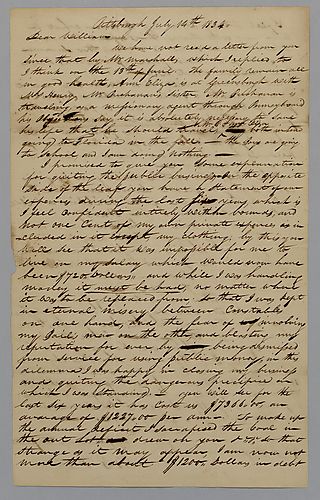 Pittsburgh July 14th 1834
Dear William
We have not read a letter from you
since that by Mr Marshall, which I replied to
I think on the 13th of June. The family remain all
in good health, Ann Eliza is at Greensburgh with
Mrs Henry, Mr Buchanan's sister Mr Buchanan is
travelling as a missionary agent through Pennsylvania
by they say it is absolutely necessary to save
his life that he should travel
going to Florida in the fall the boys are going
to School and I am doing Nothing
I promised to give you some explanation
for quitting the public business. On the opposite
side of the leaf you have a Statement of our
expenses during the last years which is
I feel confident entirely within bounds, and
Not one Cent of my own private expenses, is in
cluded in except my clothing — by this you
will see that it was impossible for me to
live on my salary which would now have
been $720 Dollars, and while I was handling
money it must be had, no matter where
it was to be replaced from, so that I was kept
in eternal misery between Constables
on one hand, and the fear of involving
my bail men on the other and blasting my
reputation for ever being dismissed
from service for using public money, in this
dilemma I was happy in closing my business
and quitting the dangerous precipice on
which I was standing — you will see for the
last six years it has Cost us $7366.00, an
average of $1227.00 per ann. To make up
the annual deficit I sacrificed the land in
the out Lot drew on you &c, &c so that
Strange as it may appear I am now not
more than about $1200. Dollars in debt